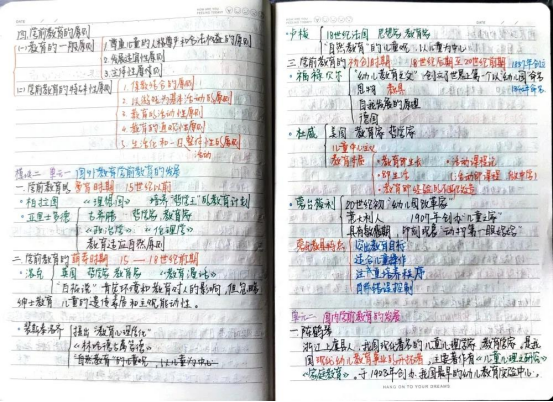 四.学前教育的原则
(一)教育的一般原则
1.尊重儿童的人格尊严和合法权益的原则
2.发展适宜性原则
3.主体性原则
(二)学前教育的特殊性原则
1.保教结合的原则
2.以游戏为基本活动的原则
3.教育的活动性原则
4.教育的直观性原则
5.生活化和一日整体性的原则
活动
单元一 国外学前教育的发展
一.学前教育的孕育时期 15世纪以前
·柏拉图 《理想国》 培养"哲学王"的教育计划
·亚里士多德 古希腊 哲学家 教育家
《政治学》 《伦理学》
教育适应自然原则
二.学前教育的萌芽时期 15—18世纪前期
·洛克 英国 哲学家 教育家 《教育漫话》
"白板说" 肯定环境和教育对人的影响,但忽略
绅士教育 儿童的遗传素质和主观能动性。
·裴斯泰洛齐 提出"教育心理学化"
《林哈德与葛笃德》
"自然教育"的重视,以儿童为中心
·卢梭 18世纪法国 思想家 教育家
"自然教育"的重视,以儿童为中心
三.学前教育的初创时期 18世纪后期至20世纪前期
·福禄贝尔 "幼儿教育之父" 创立了世界上第一个以幼儿园命名
恩物 教具
自我发展的原理
德国
·杜威 美国 教育家 哲学家
儿童中心论
教育本质 ·教育即生长 ·活动课程论
·即生活
·教育即经验的不断改造
·蒙台梭利 20世纪初"幼儿园改革家"
意大利人 1907年创办"儿童之家"
蒙氏教具特点 突出教育目标
适合儿童操作
注重培养秩序
自带错误控制
单元二 国内学前教育的发展
一.陈鹤琴
浙江上虞人,我国现代著名的儿童心理学家 教育学家,是我
国现代幼儿教育事业的开拓者,主要著作有《儿童心理之研究》
《家庭教育》。于1923年创办我国最早的幼儿教育实验中心。
HANG ON TO YOUR DREAMS